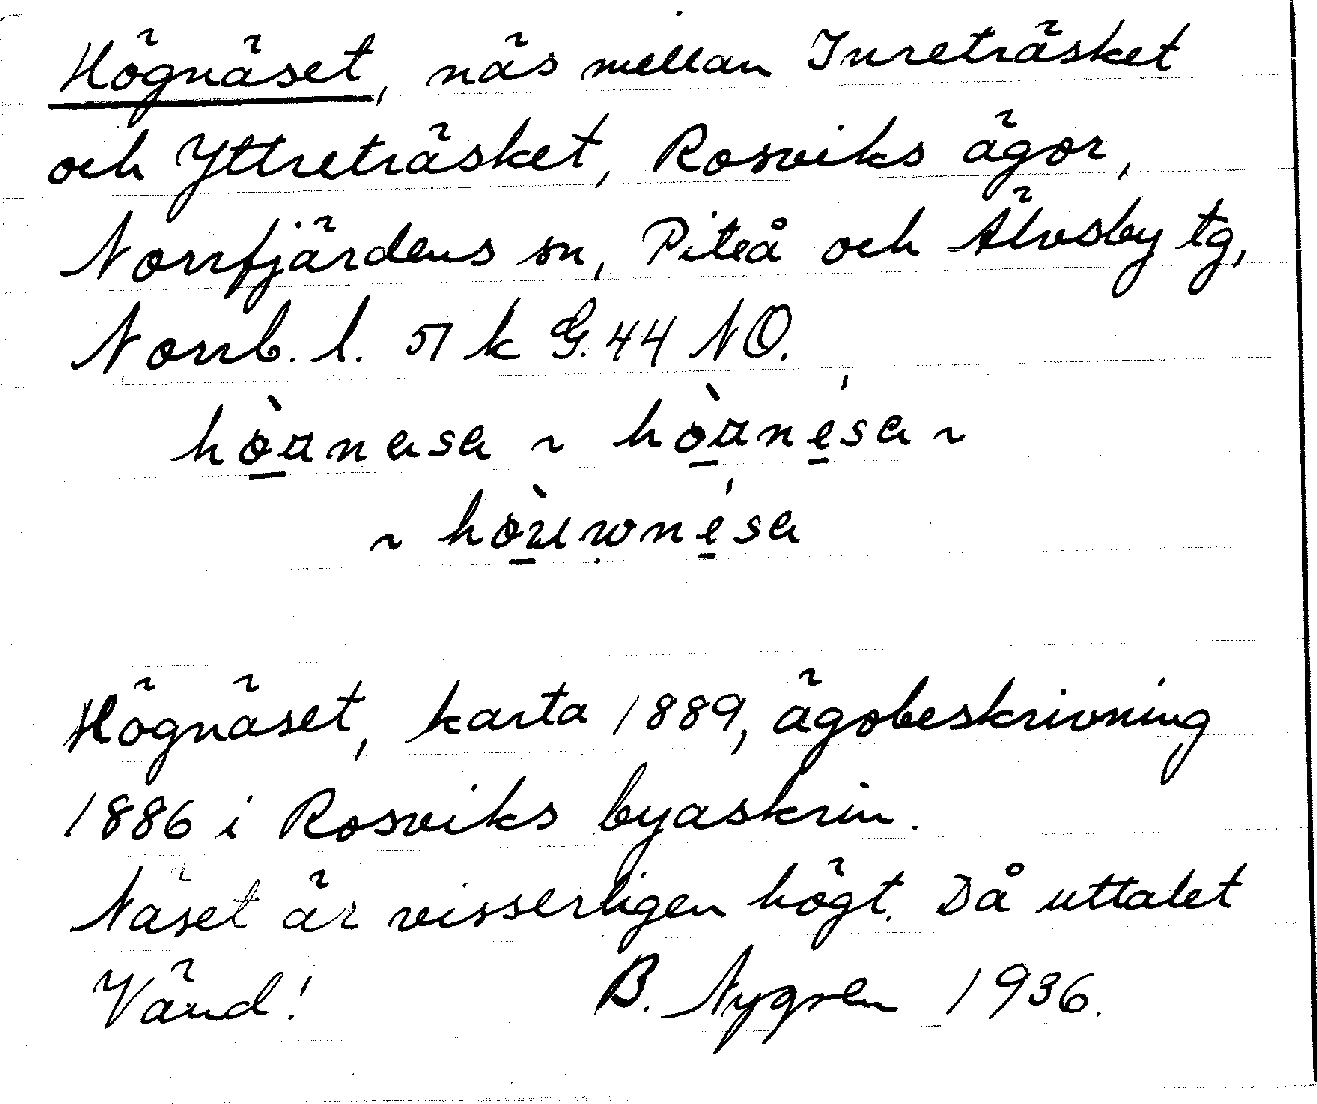 Högnäset, näs mellan Inreträsket
och Yttreträsket, Rosviks ägor,
Norrfjärdens sn, Piteå och Älvsby tg,
Norrb. l. 51 k G. 44 NO.
~
~
Högnäset, karta 1889, ägobeskrivning
1886 i Rosviks byaskrin.
Näset är visserligen högt. Då uttalet
Vänd! B. Nygren 1936.